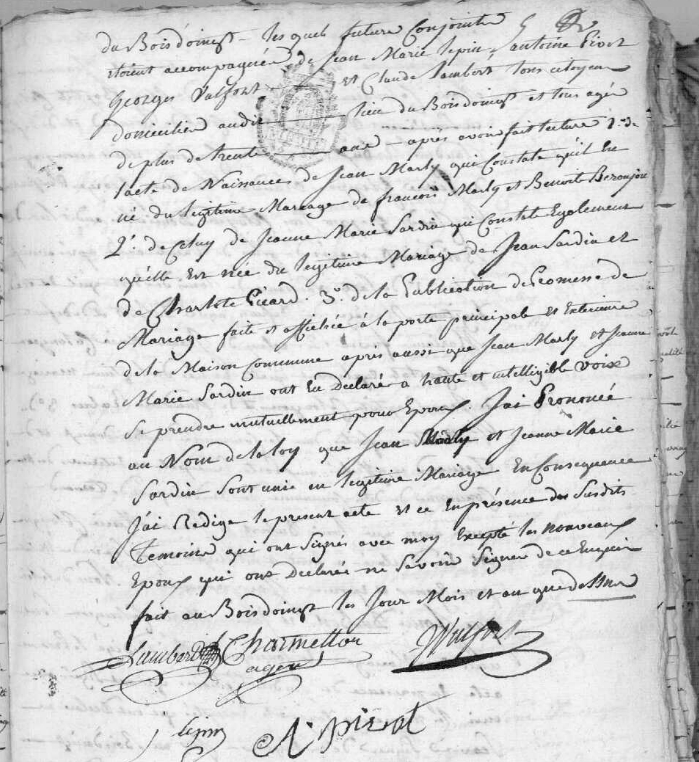 du Boisdoingt - les quels future Conjoints
etoient accompagnée de Jean Marie lepin, antoine Pivot
Georges Valfort et Claude Lambert tous citoyen
domicilies audit lieu du Boisdoingt et tous agée
de plus de trente ans - après avoir fait lecture 1° de
lacte de Naissances de Jean Marly qui Constate qu'il Est
né du legitime Mariage de françois Marly et Benoite Bezonjon
2°. de Celuy de Jeanne Marie Sardin qui Constate Egalement
quelle Est née du legitime Mariage de Jean Sardin et
de Charlote Picard. 3°. de la Publication de Promesse de
Mariage faite et affichée à la porte principale et Exterieure
de la Maison Commune après aussi que Jean Marly et Jeanne
Marie Sardin ont Eu Declaré a haute et intelligible voix
Se prendre mutuellement pour Epoux. J'ai Prononcé
au Nom de la loy que Jean Marly et Jeanne Marie
Sardin Sont unis en legitime Mariage En Consequence
J'ai Redigé le present acte et ce En présence des Susdits
temoins qui ont Signé avec moy Excepté les nouveaux
Epoux qui ont Declarée ne Savoir Signer de ce Enquis
fait au Boisdoingt les Jour Mois et an que dessus
Lambert Charmetton Valfort
agent
lepin A. pivot